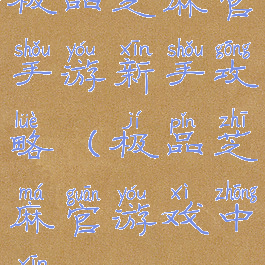 极品芝麻官
shǒu yóu xīn shǒu gōng
手游新手攻
lüè jí pǐn zhī
略（极品芝
má guān yóu xì zhōng
麻官游戏中
xīn